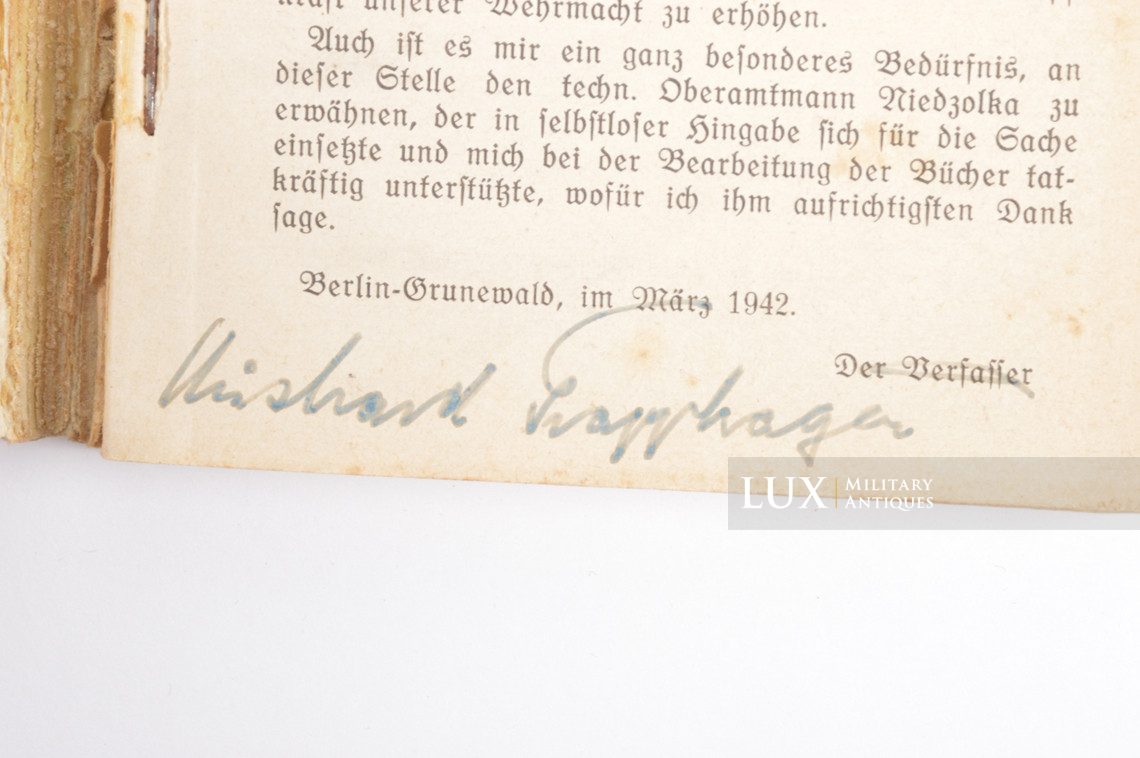 unserer Wehrmacht zu erhöhen.
Auch ist es mir ein ganz besonderes Bedürfnis, an
dieser Stelle den techn. Oberamtmann Niedzolka zu
erwähnen, der in selbstloser Hingabe sich für die Sache
einsetzte und mich bei der Bearbeitung der Bücher tat-
kräftig unterstützte, wofür ich ihm aufrichtigsten Dank
sage.
Berlin-Grunewald, im März 1942.
Der Verfasser
Trapphagen
LUX MILITARY ANTIQUES